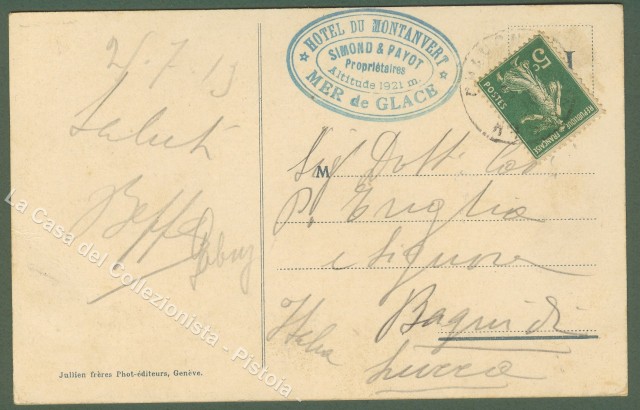 25.7.13
Saluti
Beppe
HOTEL DU MONTANVERT
SIMOND & PAYOT
Propriétaires
Altitude 1921 m.
MER de GLACE
5c
POSTES
REPUBLIQUE FRANÇAISE
M
Sig Dott.
e Signora
Bagni di
Lucca
Italia
Jullien frères Phot-éditeurs, Genève.
La Casa del Collezionista - Pistoia -